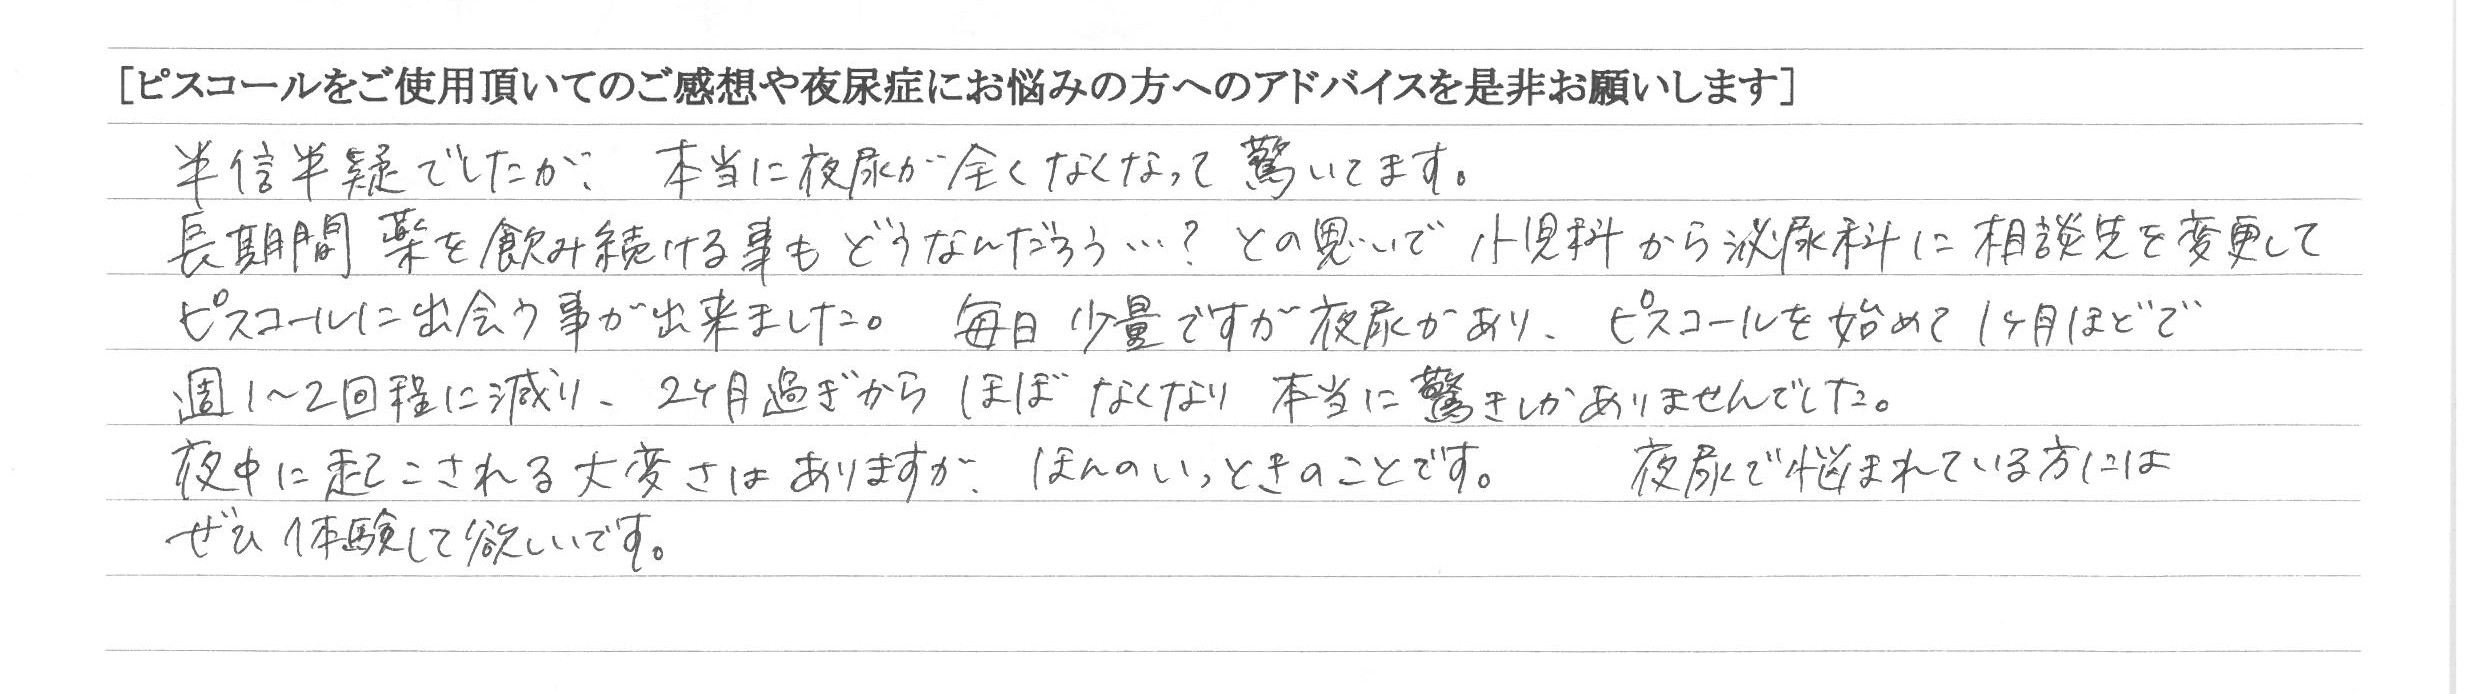 [ピスコールをご使用頂いてのご感想や夜尿症にお悩みの方へのアドバイスを是非お願いします]
半信半疑でしたが、本当に夜尿が全くなくなって驚いてます。
長期間薬を飲み続ける事もどうなんだろう…?との思いで小児科から泌尿科に相談先を変更して
ピスコールに出会う事が出来ました。毎日少量ですが夜尿があり、ピスコールを始めて1ヶ月ほどで
週1〜2回程に減り、2ヶ月過ぎからほぼなくなり本当に驚きしかありませんでした。
夜中に起こされる大変さはありますが、ほんのいっときのことです。夜尿で悩まれている方には
ぜひ体験して欲しいです。